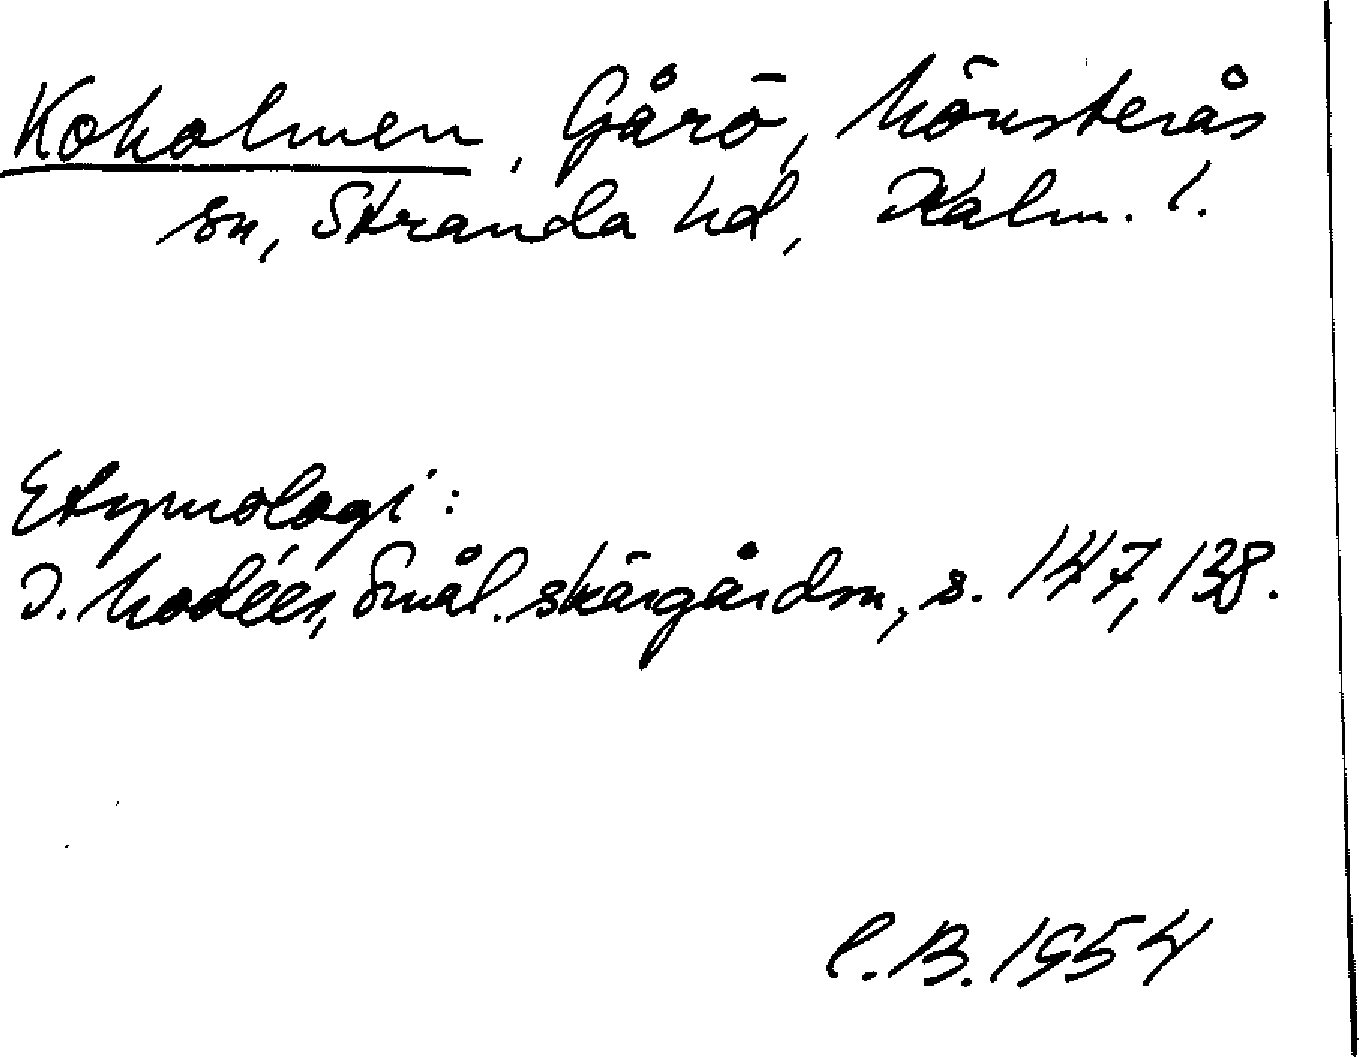 Koholmen, Gårö, Mönsterås
sn, Stranda hd, Kalm. l.
Etymologi:
I. Modéer, Smål. skärgårdsn, s. 147, 138.
C.B. 1954